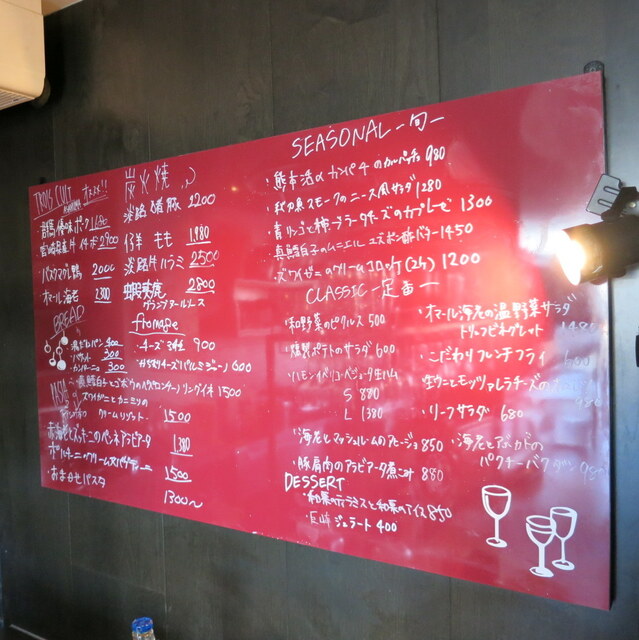 TROIS CUIT オススメ!!
豚 1,680
牛イチボ 2900
バスク 鴨 2000
オマール海老 2300
BREAD
400
バケット 300
300
炭火焼
淡路 猪豚 2200
仔羊 もも 1,980
淡路牛ハラミ 2500
蝦夷鹿 2800
グランヴヌールソース
fromage
チーズ3種 900
600
真鱈白子とゴボウの リングイネ 1500
ズワイガニとカニミソの
クリームリゾット 1500
赤海老とズッキーニのペンネアラビアータ 1380
ポルチーニのクリームスパゲッティーニ 1500
おまかせパスタ 1300〜
SEASONAL -旬-
・熊本 カンパチのカルパッチョ 980
・秋刀魚スモークのニース風サラダ 1280
・青リンゴと柿・ブラータチーズのカプレーゼ 1300
・真鱈白子のムニエル ユズポン酢バター 1450
・ズワイガニのクリームコロッケ(2ヶ) 1200
CLASSIC -定番-
・和野菜のピクルス 500
・燻製ポテトのサラダ 600
・ハモンイベリコ・ベジョータ生ハム
S 880
L 1380
・海老とマッシュルームのアヒージョ 850
・豚肩肉のアラビアータ煮込み 880
・オマール海老の温野菜サラダ
トリュフビネグレット 1480
・こだわりフレンチフライ 600
・生ウニとモッツァレラチーズの
・リーフサラダ 680
・海老とアボカドの
パクチーバクダン
DESSERT
・和栗のティラミスと和栗のアイス 850
・ジェラート 400